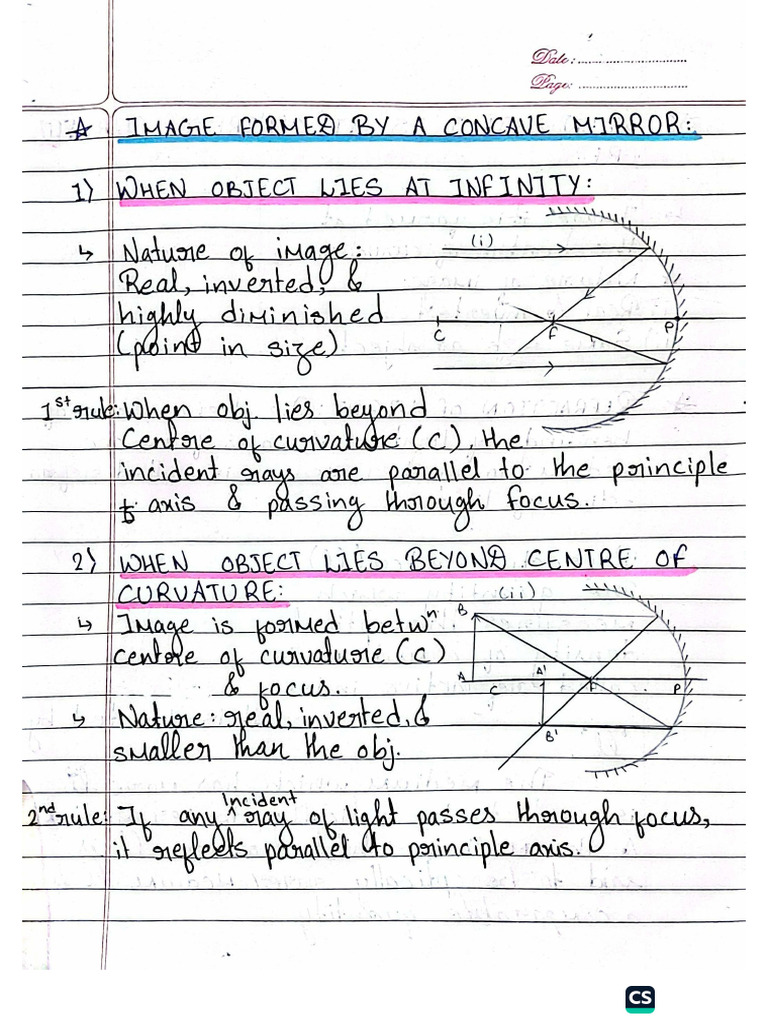 Date:
Page:
☆ IMAGE FORMED BY A CONCAVE MIRROR:
1) WHEN OBJECT LIES AT INFINITY:
(i)
↳ Nature of image:
Real, inverted, &
highly diminished
(point in size)
C F P
1st rule: When obj. lies beyond
Centre of curvature (C), the
incident rays are parallel to the principle
axis & passing through focus.
2) WHEN OBJECT LIES BEYOND CENTRE OF
CURVATURE:
(ii)
↳ Image is formed betwn
centre of curvature (C)
& focus.
B
A C A' F P
B'
↳ Nature: real, inverted, &
smaller than the obj.
2nd rule: If any Incident ray of light passes through focus,
it reflects parallel to principle axis.
CS